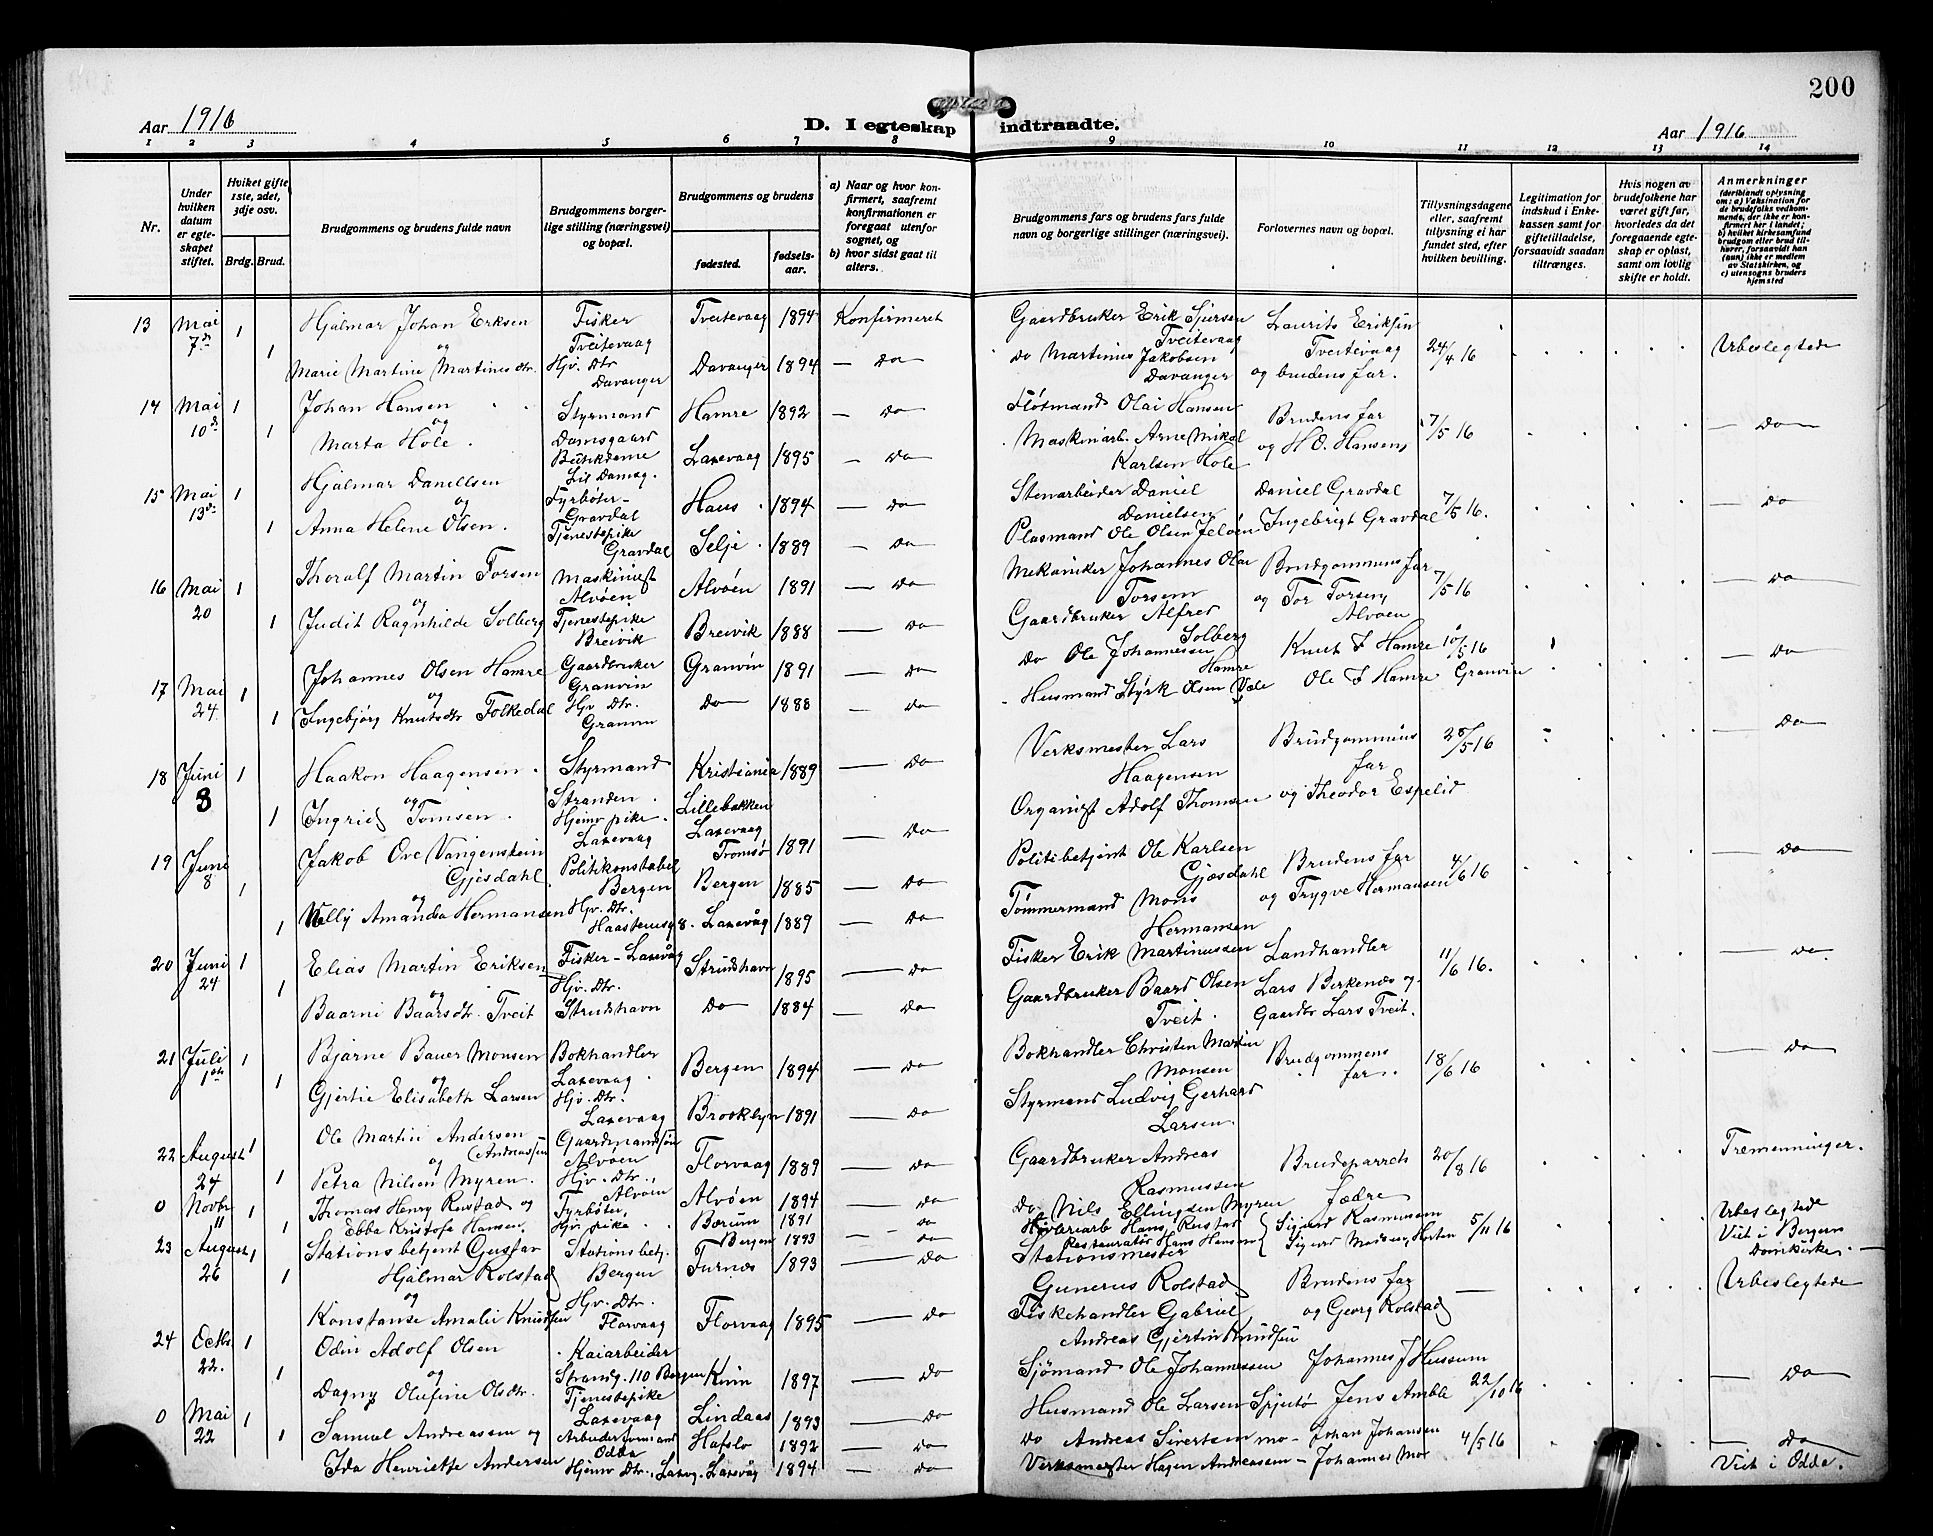 200
Aar 1916
D. I egteskap indtraadte.
Aar 1916
1 2 3 4 5 6 7 8 9 10 11 12 13 14
Nr.
Under hvilken datum er egteskapet stiftet.
Hvilket gifte, 1ste, 2det, 3dje osv.
Brdg. Brud.
Brudgommens og brudens fulde navn
Brudgommens borgerlige stilling (næringsvei) og bopæl.
Brudgommens og brudens
fødested.
fødselsaar.
a) Naar og hvor konfirmert, saafremt konfirmationen er foregaat utenfor sognet, og
b) hvor sidst gaat til alters.
Brudgommens fars og brudens fars fulde navn og borgerlige stillinger (næringsvei).
Forlovernes navn og bopæl.
Tillysningsdagene eller, saafremt tillysning ei har fundet sted, efter hvilken bevilling.
Legitimation for indskud i Enkekassen samt for giftetilladelse, forsaavidt saadan tiltrænges.
Hvis nogen av brudefolkene har været gift før, hvorledes da det foregaaende egteskap er opløst, samt om lovlig skifte er holdt.
Anmerkninger
(deriblandt oplysning om: a) Vaksination for de brudefolks vedkommende, der ikke er konfirmert her i landet; b) hvilket kirkesamfund brudgom eller brud tilhører, forsaavidt han (hun) ikke er medlem av Statskirken, og c) utensogns bruders hjemsted
13 Mai 7de 1 Hjalmar Johan Eriksen Fisker Tveitevaag Tveitevaag 1894 Konfirmeret Gaardbruker Erik Sjursen Tveitevaag Laurits Eriksen Tveitevaag 24/4 16 Ubeslegtede
og
1 Marie Martine Martinesdtr. Hjv. Dtr. Davanger Davanger 1894 — Do Do Martinus Jakobsen Davanger og brudens far.
14 Mai 10de 1 Johan Hansen Styrmand Damsgaard Hamre 1892 — Do Fløtmand Olai Hansen Brudens far 7/5 16 — Do
og
1 Marta Hole. Laxevaag 1895 — Do Maskinarb. Arne Mikal Karlsen Hole og H.O. Hansen
15 Mai 13de 1 Hjalmar Danellsen Fyrbøter Gravdal Haus 1894 — Do Stenarbeider Daniel Danielsen Daniel Gravdal 7/5 16. — Do
og
1 Anna Helene Olsen. Tjenestepike Gravdal Selje 1889 — Do Plasmand Ole Olsen Ingebrigt Gravdal
16 Mai 20 1 Thoralf Martin Torsen Maskinist Alvøen Alvøen 1891 — Do Mekaniker Johannes Olai Torsen Brudgommens far 7/5 16 — Do
og
1 Judit Ragnhilde Solberg Tjenestepike Breivik Breivik 1888 — Do Gaardbruker Alfred Solberg og Tor Torsen, Alvøen
17 Mai 24 1 Johannes Olsen Hamre Gaardbruker Granvin Granvin 1891 — Do Do Ole Johannessen Hamre Knut F Hamre 10/5 16 — Do
og
1 Ingebjørg Knutsdtr Folkedal Hjv Dtr. Granvin Do 1888 — Do Husmand Styrk Olsen Ole F Hamre Granvin
18 Juni 8 1 Haakon Haagensen Styrmand Stranden Kristiania 1889 — Do Verksmester Lars Haagensen Brudgommens far 28/5 16 — Do
og
1 Ingrid Tomsen. Hjemv pike Laxevaag Lillebakken Laxevaag 1891 — Do Organist Adolf Thomsen og Theodor Espelid
19 Juni 8 1 Jakob Ove Vangenstein Gjesdahl. Politikonstabel Bergen Tromsø Bergen 1885 — Do Politibetjent Ole Karlsen Gjesdahl Brudens far 4/6 16 — Do
og
1 Nelly Amanda Hermansen Hjv. Dtr. Laxevåg 1889 — Do Tømmermand Mons Hermansen og Trygve Hermansen
20 Juni 24 1 Elias Martin Eriksen Fisker – Laxevåg Strudshavn 1895 — Do Fisker Erik Martinussen Landhandler 11/6 16. — Do.
og
1 Baarni Baarsdtr. Tveit Hjv. Dtr. Strudshavn Do 1884 — Do Gaardbruker Baard Olsen Tveit. Lars Birkenes og Gaardbr Lars Tveit.
21 Juli 1ste 1 Bjarne Bauer Monsen Bokhandler Laxevaag Bergen 1894 — Do Bokhandler Christen Martin Monsen Brudgommens far. 18/6 16 — Do
og
1 Gjertie Elisabeth Larsen Hjv. Dtr. Laxevaag Brooklyn 1891 — Do Styrmand Ludvig Gerhard Larsen.
22 August 24 1 Ole Martin Andersen (Andreassen Gaardmandsøn Alvøen Florvaag 1889 — Do Gaardbruker Andreas Rasmussen Brudeparrets fædre 20/8 16 Tremenninger.
og
1 Petra Nilsen Myren. Hjv. Dtr., Alvøen Alvøen 1894 — Do Do Nils Ellingsen Myren
0 Novbr 11 1 Thomas Henry Rustad og Fyrbøter, Bærum 1891 — Do Hans Rustad Sigurd Rasmussen 5/11 16 Ubeslegtede
1 Ebba Kristofa Hansen. Hjv. pike Bergen 1893 — Do Restauratør Hans Hansen Sigurd Madsen, Horten Viet i Bergens Domkirke.
23 August 26 1 Stationsbetjent Gustav Hjalmar Rolstad Stationsbetj. Bergen Furnes 1893 — Do Stationsmester Gunerus Rolstad Brudens far — Ubeslegtede
og
1 Konstanse Amalie Knudsen Hjv. Dtr. Florvaag Florvaag 1895 — Do Fiskehandler Gabriel Andreas Gjertin Knudsen og Georg Rolstad
24 Octbr 22. 1 Odin Adolf Olsen Kaiarbeider Strandg. 110 Bergen Kinn 1897 — Do Sjømand Ole Johannessen Johannes J Hussum 22/10 16 — Do
og
1 Dagny Olufine Olsdtr. Tjenestepike Laxevaag Lindaas 1893 — Do Husmand Ole Larsen Jens Amble
0 Mai 22 1 Samuel Andreassen og Arbeiderformand Odda Hafslo 1892 — Do Do Andreas Sivertsen Johan Johansen 4/5 16 — Do
1 Ida Henriette Andersen Hjemv Dtr., Laxev. Laxevåg 1894 — Do Verksmester Hagen Andreassen – Johannes Mor Viet i Odda.